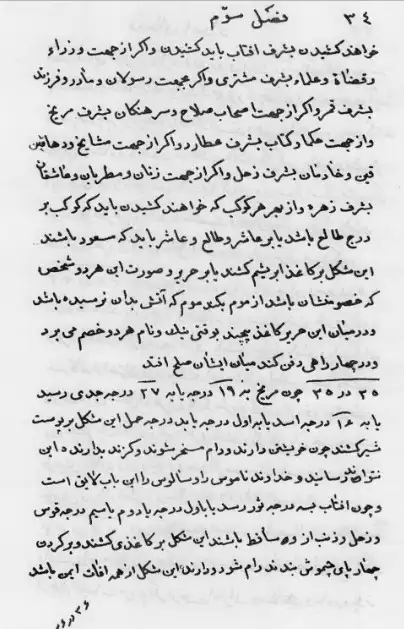 ۳۴ فصل سوّم
خواهند کشیدن بشرف افتاب باید کشیدن واکر از جهت وزراء
وقضاة وعلماء بشرف مشتری واکر بجهت رسولان ومادر وفرزند
بشرف قمر واکر از جهت اصحاب صلاح وسرهنکان بشرف مریخ
واز جهت حکما وکتاب بشرف عطارد واکر از جهت مشایخ ودهاقین
بشرف زحل واکر از جهت زنان ومطربان وعاشقان
بشرف زهره واز بهر هر کوکب که خواهند کشیدن باید که کوکب بر
درج طالع باشد یا بر عاشر وطالع وعاشر باید که مسعود باشند
این شکل بر کاغذ ابریشم کشند یا بر حریر وصورت این هر دو شخص
که خصومتشان باشد از موم بکند موم که آتش بدان نرسیده باشد
ودر میان این حریر کاغذ بپیچند بوقتی نیک ونام هر دو خصم می برد
ودر چهار راهی دفن کند میان ایشان صلح افتد
۳۵ در ۳۵ چون مریخ به ۱۹ درجه یا به ۲۷ درجه جدی رسید
یا به درجه اسد یا به اول درجه یا به درجه حمل این شکل بر پوست
شیر کشند چون خویشتن دارند ودام مسخر شوند وکزند بدارنده این
نتوانند رسانید وخدا دارند ناموس را وسالوس را این باب لایق است
وچون افتاب بسه درجه ثور رسد یا باول درجه یا دوم یا سیم درجه قوس
وزحل وذنب از وی ساقط باشند این شکل بر کاغذی کشند وبر کردن
چهارپای چموش بندند رام شود ودارنده این شکل از همه افات ایمن باشد
۳۶ در